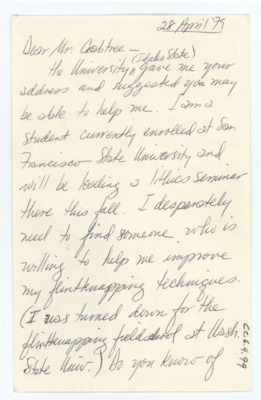 28 April 79
Dear Mr. Crabtree —
(Idaho State)
The University gave me your
address and suggested you may
be able to help me. I am a
student currently enrolled at San
Francisco State University and
will be leading a lithics seminar
there this fall. I desparately
need to find someone who is
willing to help me improve
my flintknapping techniques.
(I was turned down for the
flintknapping fieldschool at Wash.
State Univ.) Do you know of